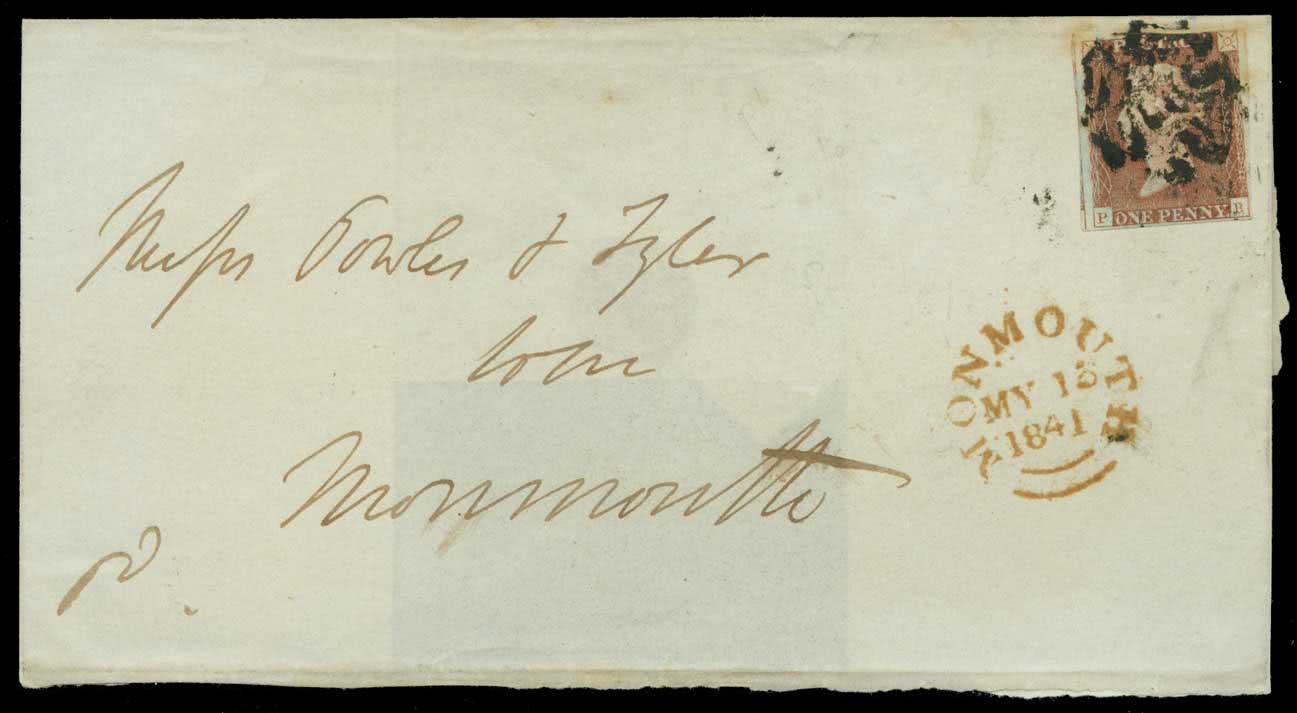 POSTAGE
P ONE PENNY R
Messrs Powles & Tyler
Monmouth
pd.
MONMOUTH
MY 13
1841